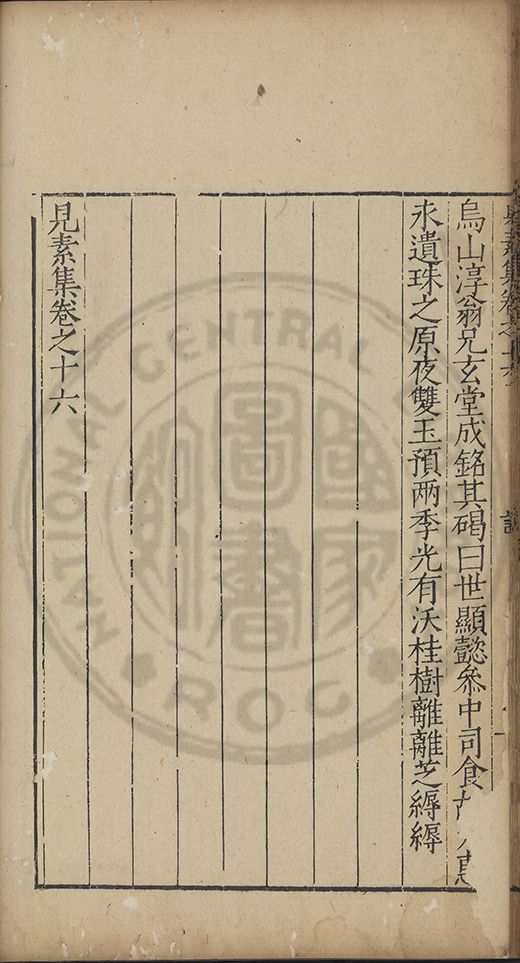 烏山淳翁兄玄堂成銘其碣曰世顯懿㕘中司食
永遺珠之原夜雙玉預两季光有沃桂樹離離芝縟縟
見素集卷之十六
NATIONAL CENTRAL
ROC
國家圖書館